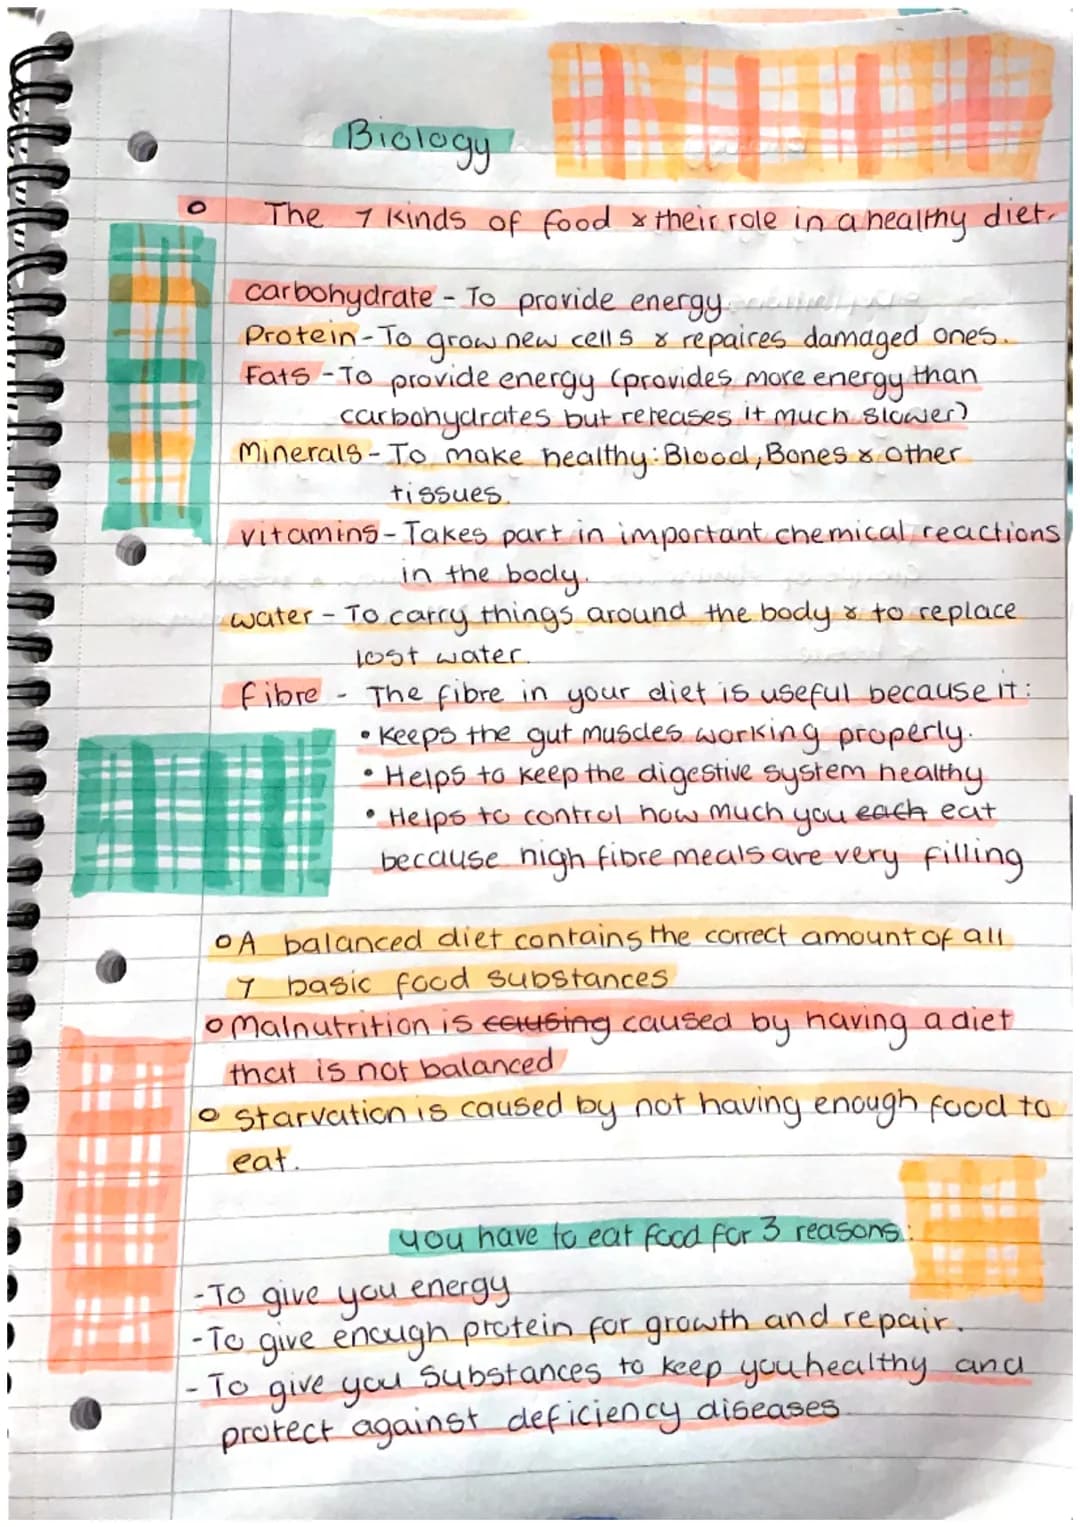 Biology
The 7 kinds of food & their role in a healthy diet.
carbohydrate - To provide energy.
Protein - To grow new cells & repaires damaged ones.
Fats - To provide energy (provides more energy than
carbohydrates but releases it much slower)
Minerals - To make healthy: Blood, Bones & other
tissues.
vitamins - Takes part in important chemical reactions
in the body.
water - To carry things around the body & to replace
lost water.
fibre - The fibre in your diet is useful because it:
• Keeps the gut muscles working properly.
• Helps to keep the digestive system healthy
• Helps to control how much you each eat
because high fibre meals are very filling
o A balanced diet contains the correct amount of all
7 basic food substances
o Malnutrition is causing caused by having a diet
that is not balanced
o starvation is caused by not having enough food to
eat.
you have to eat food for 3 reasons:
- To give you energy
- To give enough protein for growth and repair.
- To give you substances to keep you healthy and
protect against deficiency diseases